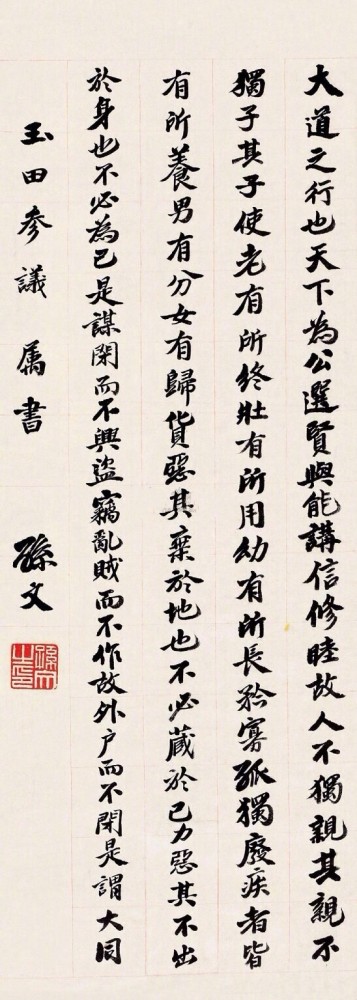 大道之行也天下為公選賢與能講信修睦故人不獨親其親不
獨子其子使老有所終壯有所用幼有所長矜寡孤獨廢疾者皆
有所養男有分女有歸貨惡其棄於地也不必藏於己力惡其不出
於身也不必為己是謀閉而不興盜竊亂賊而不作故外戶而不閉是謂大同
玉田参議 属書 孫文
孫文之印